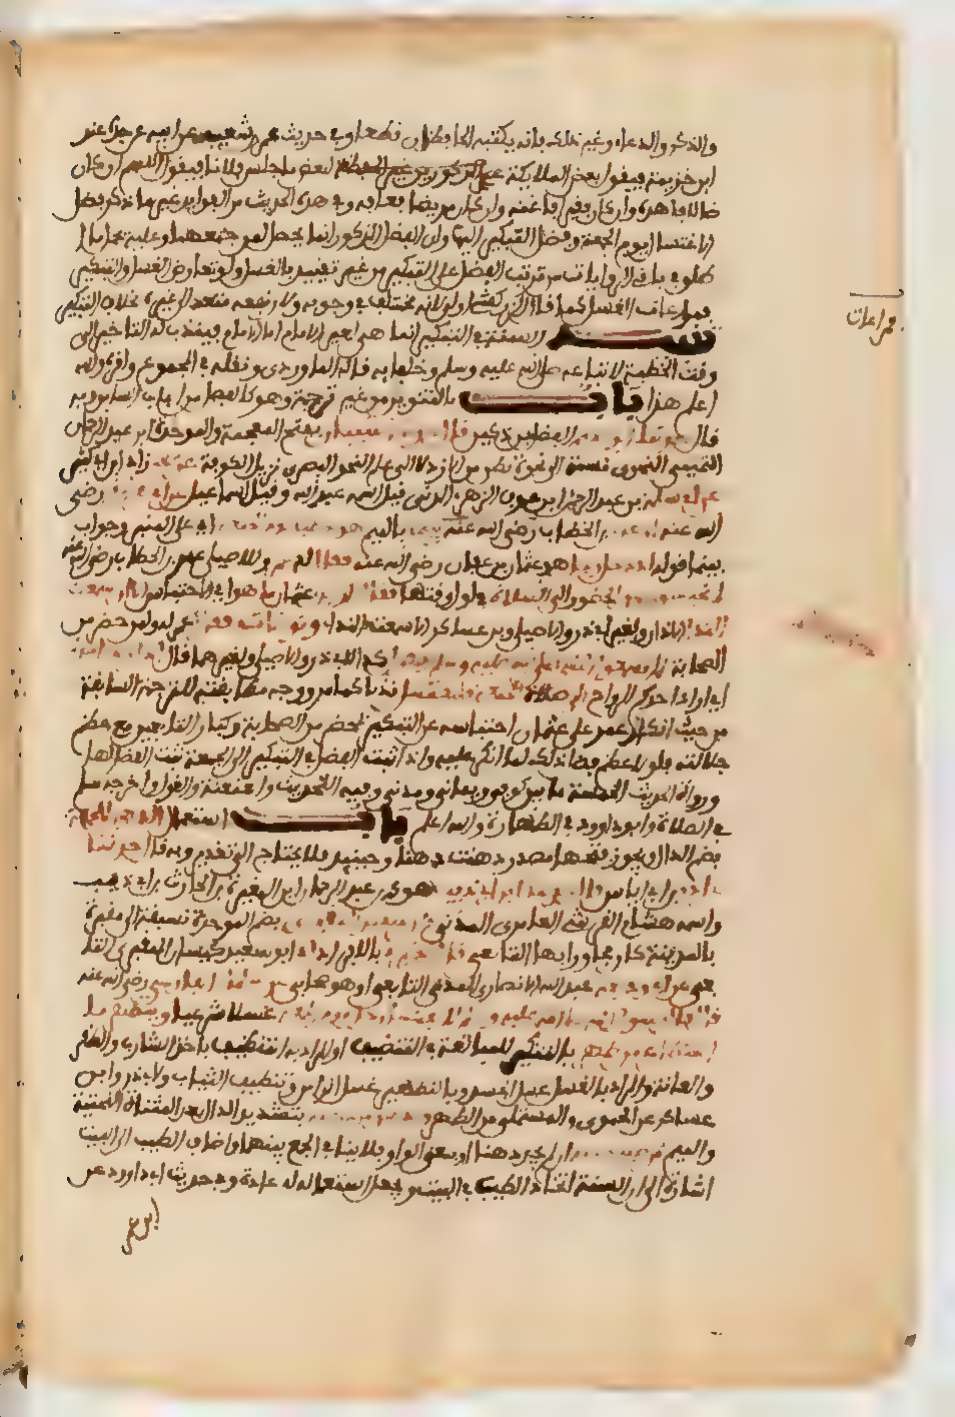 والذكر والدعاء وغير ذلك فانه يكتبه الحافظان قطعا وفي حديث عمرو بن شعيب عن ابيه عن جده عند
ابن خزيمة فيقول بعض الملائكة لبعض ما حبس فلانا فيقول اللهم ان كان
ضالا فاهده وان كان فقيرا فاغنه وان كان مريضا فعافه وفي هذا الحديث من الفوائد غير ما ذكر فضل
الاغتسال يوم الجمعة وفضل التبكير اليها وان الفضل المذكور انما يحصل لمن جمعهما وعليه يحمل ما
اطلق في باقي الروايات من ترتب الفضل على التبكير من غير تقييد بالغسل ولو تعارض الغسل والتبكير
فمراعات الغسل كما قال الزركشي اولى لانه مختلف في وجوبه ولان نفعه متعد الى غيره بخلاف التبكير
السنة في التبكير انما هي لغير الامام اما الامام فيندب له التاخير الى
وقت الخطبة لاتباعه صلى الله عليه وسلم وخلفايه قاله الماوردي ونقله في المجموع واقره والله
اعلم هذا باب بالتنوين من غير ترجمة وهو كالفصل من الباب السابق وبه
قال حدثنا ابو نعيم الفضل بن دكين قال حدثنا شيبان بفتح المعجمة والموحدة ابن عبد الرحمن
التميمي النحوي نسبة الى نحوة بطن من الازد لا الى علم النحو البصري نزيل الكوفة عن يحيى زاد ابن ابي كثير
عن ابي سلمة بن عبد الرحمن ابن عوف الزهري المدني قيل اسمه عبد الله وقيل اسماعيل عن ابي هريرة رضي
الله عنه ان عمر بن الخطاب رضي الله عنه بينما بالميم هو يخطب يوم الجمعة اي على المنبر وجواب
بينما قوله اذ دخل رجل هو عثمان بن عفان رضي الله عنه فقال له عمر وللاصيلي عمر بن الخطاب رضي الله عنه
لم تحتبسون عن الحضور الى الصلاة في اول وقتها فقال الرجل عثمان ما هو اي الاحتباس الا ان سمعت
النداء الاذان ولغير ابي ذر والاصيلي وابن عساكر الا سمعت النداء وتوضات فقال عمر له ولمن حضر من
الصحابة الم تسمعوا النبي صلى الله عليه وسلم يقول كذا لابي ذر والاصيلي ولغيرهما قال اذا راح احدكم
اي اراد احدكم الرواح الى صلاة الجمعة فليغتسل ندبا كما مر ووجه مطابقته للترجمة السابقة
من حيث انكار عمر على عثمان احتباسه عن التبكير بمحضر من الصحابة وكبار التابعين مع عظم
جلالته فلولا عظم فضل ذلك لما انكر عليه واذا ثبت الفضل في التبكير الى الجمعة ثبت الفضل لها
ورواة الحديث الخمسة ما بين كوفي ويماني ومدني وفيه التحديث والعنعنة والقول واخرجه مسلم
في الصلاة وابو داوود في الطهارة والله اعلم باب استعمال الدهن للجمعة
بضم الدال ويجوز فتحها مصدر دهنت دهنا وحينيذ فلا يحتاج الى تقدير وبه قال حدثنا
ادم بن ابي اياس قال حدثنا ابن ابي ذيب هو محمد بن عبد الرحمان ابن المغيرة بن الحارث بن ابي ذيب
واسمه هشام القرشي العامري المدني عن سعيد المقبري بضم الموحدة نسبة الى مقبرة
بالمدينة كان مجاورا بها التابعي قال اخبرني بالافراد ابي ابو سعيد كيسان المقبري التا
بعي عن ابن وديعة عبد الله الانصاري المدني التابعي او هو صحابي عن سلمان الفارسي رضي الله عنه
قال قال رسول الله صلى الله عليه وسلم لا يغتسل رجل يوم الجمعة غسلا شرعيا ويتطهر ما
استطاع من طهر بالتنكير للمبالغة في التنظيف او المراد به التنظيف باخذ الشارب والظفر
والعانة والمراد بالغسل غسل الجسد وبالتطهير غسل الراس وتنظيف الثياب ولابي ذر وابن
عساكر عن الحموي والمستملي من الطهر ويدهن بتشديد الدال بعد المثناة التحتية
والميم ان لم يجد دهنا او بمعنى الواو فلا ينافي الجمع بينهما واضاف الطيب الى البيت
اشارة الى ان السنة اتخاذ الطيب في البيت ويجعل استعماله له عادة وفي حديث ابي داوود عن
ابن عمر
فمراعات